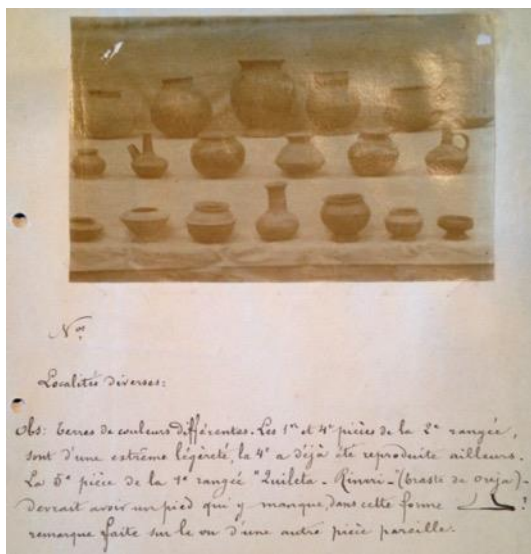 Nos
Localités diverses:
Obs: Terres de couleurs différentes. Les 1re et 4e pièces de la 2e rangée,
sont d'une extrême légèreté, la 4e a déjà été reproduite ailleurs.
La 5e pièce de la 1e rangée "Quileta - Rinri -" (traste de oreja) -
devrait avoir un pied qui y manque, dans cette forme
remarque faite sur le vu d'une autre pièce pareille.